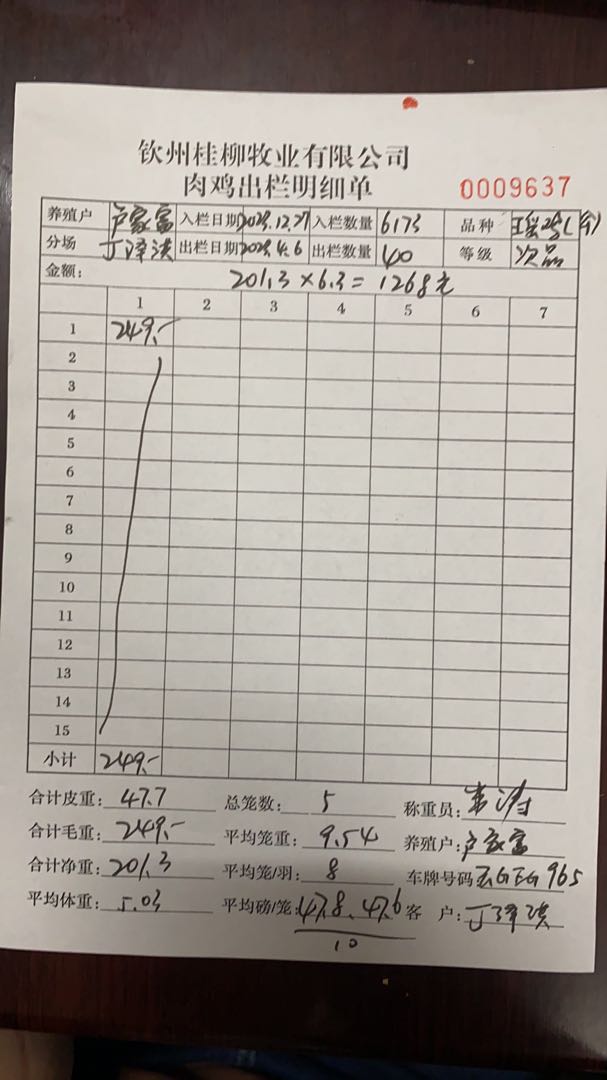 钦州桂柳牧业有限公司
肉鸡出栏明细单 0009637
养殖户 卢家富 入栏日期 2023.12.27 入栏数量 6173 品种
分场 丁泽洪 出栏日期 2024.4.6 出栏数量 40 等级 次品
金额: 201.3×6.3=1268元
1 2 3 4 5 6 7
1 249.-
2
3
4
5
6
7
8
9
10
11
12
13
14
15
小计 249.-
合计皮重: 47.7 总笼数: 5 称重员:
合计毛重: 249.- 平均笼重: 9.54 养殖户: 卢家富
合计净重: 201.3 平均笼/羽: 8 车牌号码 965
平均体重: 5.03 平均磅/笼: 47.8、47.6 客 户: 丁泽洪
10